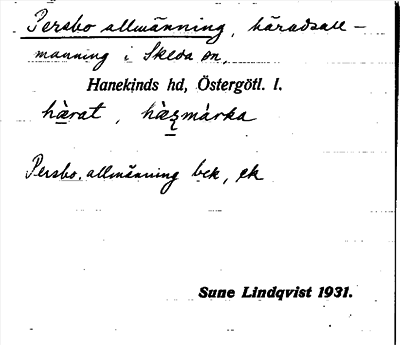 Persbo allmänning, häradsall-
manning i Skeda sn,
Hanekinds hd, Östergötl. l.
hàrat, hàzmárka
Persbo allmänning bek, ek
Sune Lindqvist 1931.